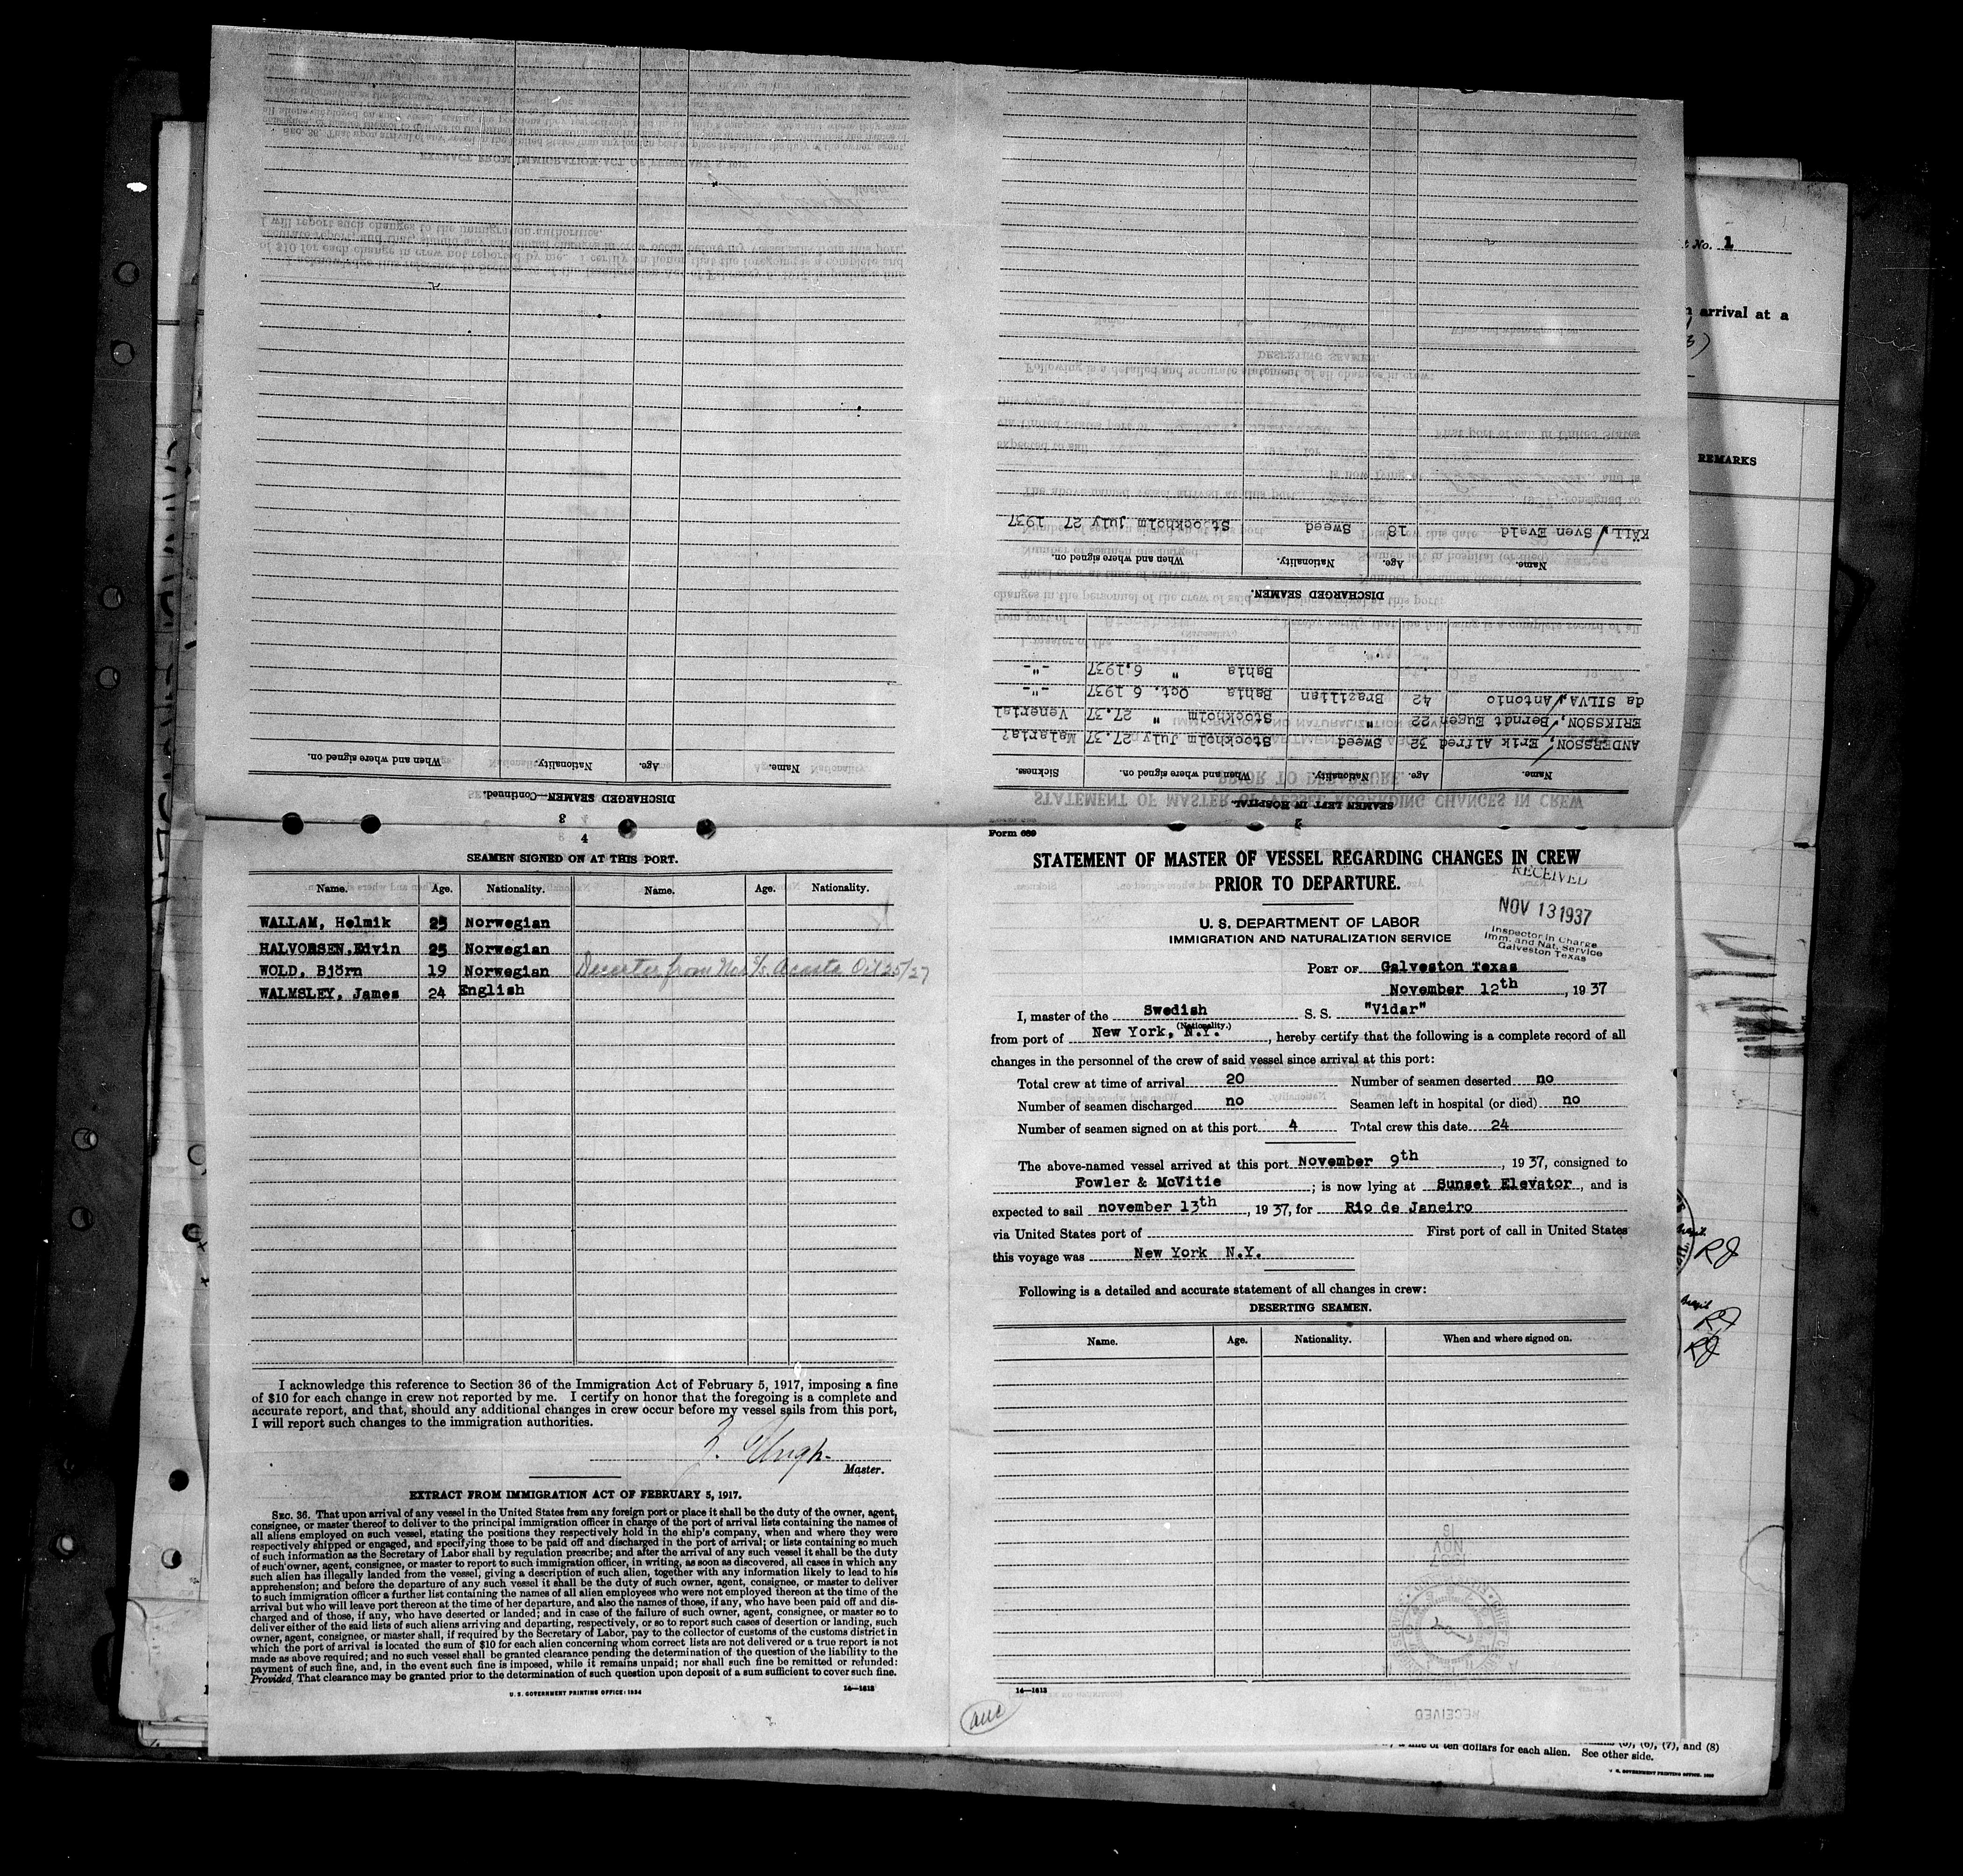 t No. 1
arrival at a
REMARKS
DISCHARGED SEAMEN—Continued.
3
Name. Age. Nationality. When and where signed on.
2
SEAMEN LEFT IN HOSPITAL.
Name. Age. Nationality. When and where signed on. Sickness.
ANDERSSON, Erik Alfred 32 Sweed Stockholm July 27.37 Malaria?
ERIKSSON, Berndt Eugen 22 " Stockholm " 27.37. Venerial
da SILVA, Antonio 42 Brazilian Bahia Oct. 6 1937 -"-
Bahia " 6.1937 -"-
DISCHARGED SEAMEN.
Name. Age. Nationality. When and where signed on.
KÄLL, Sven Eveld 18 Sweed Stockholm July 27 1937
4
SEAMEN SIGNED ON AT THIS PORT.
Name. Age. Nationality. Name. Age. Nationality.
WALLAM, Helmik 25 Norwegian
HALVORSEN, Edvin 25 Norwegian
WOLD, Björn 19 Norwegian Deserter from Nor S/s Acosta Oct 25/27
WALMSLEY, James 24 English
I acknowledge this reference to Section 36 of the Immigration Act of February 5, 1917, imposing a fine
of $10 for each change in crew not reported by me. I certify on honor that the foregoing is a complete and
accurate report, and that, should any additional changes in crew occur before my vessel sails from this port,
I will report such changes to the immigration authorities.
Master.
EXTRACT FROM IMMIGRATION ACT OF FEBRUARY 5, 1917.
SEC. 36. That upon arrival of any vessel in the United States from any foreign port or place it shall be the duty of the owner, agent,
consignee, or master thereof to deliver to the principal immigration officer in charge of the port of arrival lists containing the names of
all aliens employed on such vessel, stating the positions they respectively hold in the ship's company, when and where they were
respectively shipped or engaged, and specifying those to be paid off and discharged in the port of arrival; or lists containing so much
of such information as the Secretary of Labor shall by regulation prescribe; and after the arrival of any such vessel it shall be the duty
of such owner, agent, consignee, or master to report to such immigration officer, in writing, as soon as discovered, all cases in which any
such alien has illegally landed from the vessel, giving a description of such alien, together with any information likely to lead to his
apprehension; and before the departure of any such vessel it shall be the duty of such owner, agent, consignee, or master to deliver
to such immigration officer a further list containing the names of all alien employees who were not employed thereon at the time of the
arrival but who will leave port thereon at the time of her departure, and also the names of those, if any, who have been paid off and dis-
charged and of those, if any, who have deserted or landed; and in case of the failure of such owner, agent, consignee, or master so to
deliver either of the said lists of such aliens arriving and departing, respectively, or so to report such cases of desertion or landing, such
owner, agent, consignee, or master shall, if required by the Secretary of Labor, pay to the collector of customs of the customs district in
which the port of arrival is located the sum of $10 for each alien concerning whom correct lists are not delivered or a true report is not
made as above required; and no such vessel shall be granted clearance pending the determination of the question of the liability to the
payment of such fine, and, in the event such fine is imposed, while it remains unpaid; nor shall such fine be remitted or refunded:
Provided, That clearance may be granted prior to the determination of such question upon deposit of a sum sufficient to cover such fine.
U. S. GOVERNMENT PRINTING OFFICE: 1934 14—1613
Form 689
STATEMENT OF MASTER OF VESSEL REGARDING CHANGES IN CREW
PRIOR TO DEPARTURE.
RECEIVED
NOV 13 1937
Inspector in Charge
Imm. and Nat. Service
Galveston Texas
U. S. DEPARTMENT OF LABOR
IMMIGRATION AND NATURALIZATION SERVICE
PORT OF Galveston Texas
November 12th, 1937
I, master of the Swedish S. S. "Vidar"
(Nationality.)
from port of New York, N.Y., hereby certify that the following is a complete record of all
changes in the personnel of the crew of said vessel since arrival at this port:
Total crew at time of arrival 20 Number of seamen deserted no
Number of seamen discharged no Seamen left in hospital (or died) no
Number of seamen signed on at this port 4 Total crew this date 24
The above-named vessel arrived at this port November 9th, 1937, consigned to
Fowler & McVitie; is now lying at Sunset Elevator, and is
expected to sail november 13th, 1937, for Rio de Janeiro
via United States port of First port of call in United States
this voyage was New York N.Y.
Following is a detailed and accurate statement of all changes in crew:
DESERTING SEAMEN.
Name. Age. Nationality. When and where signed on.
14—1613
RECEIVED
RJ
RJ
RJ
of ten dollars for each alien. (6), (7), and (8)
See other side.